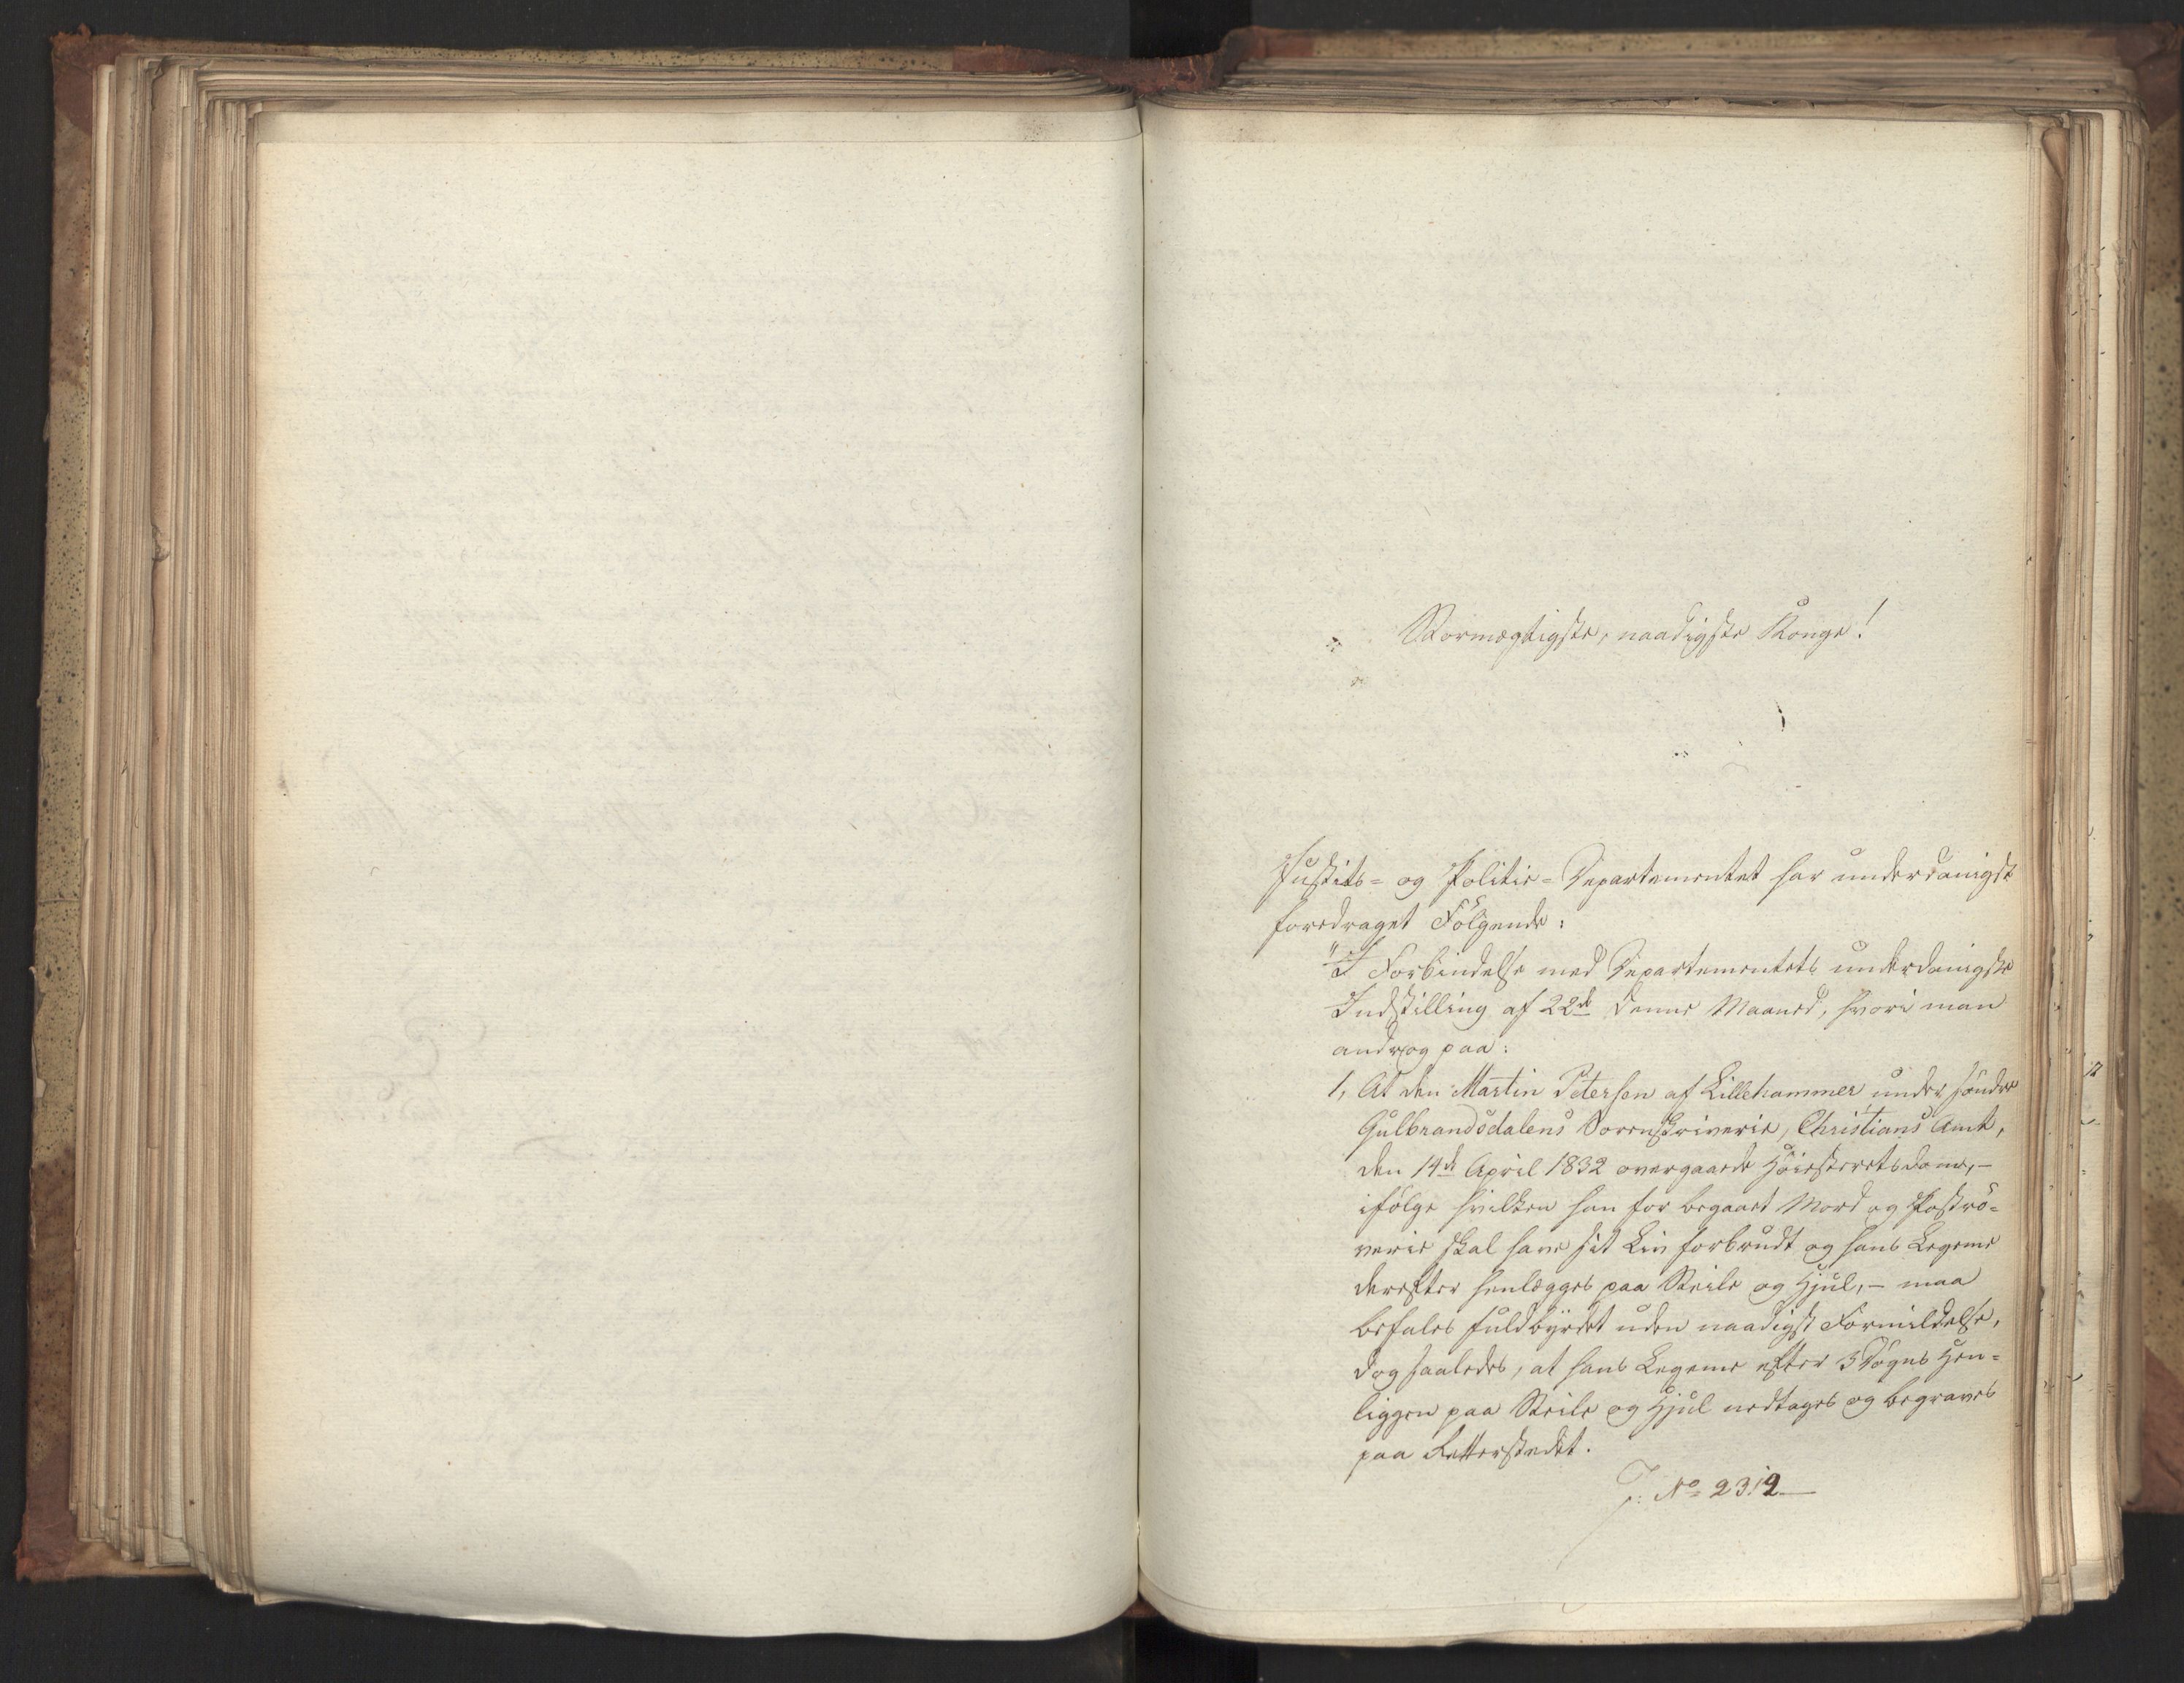 Stormægtigste, naadigste Konge!
Justits- og Politie-Departementet har underdanigst
foredraget Følgende:
"I Forbindelse med Departementets underdanigste
Indstilling af 22de denne Maaned, hvori man
androg paa:
1, At den Martin Petersen af Lillehammer under søndre
Gulbrandsdalens Sorenskriverie, Christians Amt,
den 14de April 1832 overgaaede Høiesteretsdom,-
ifølge hvilken han for begaaet Mord og Postrø-
verie skal have sit Liv forbrudt og hans Legeme
derefter henlægges paa Steile og Hjul,- maa
befales fuldbyrdet uden naadigst Formildelse,
dog saaledes, at hans Legeme efter 3 Døgns Hen-
liggen paa Steile og Hjul nedtages og begraves
paa Retterstedet.
J: No 2312